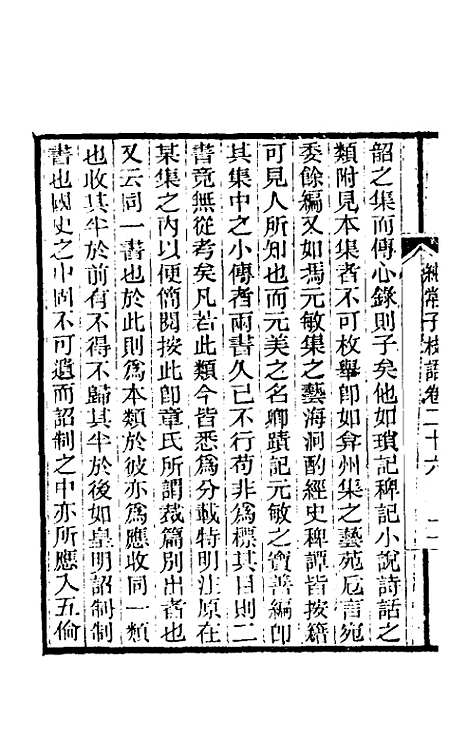 純常子枝語卷二十六
韶之集而傳心錄則子矣他如瑣記稗記小說詩話之
類附見本集者不可枚舉即如弇州集之藝苑巵言宛
委餘編又如馮元敏集之藝海洞酌經史稗譚皆按籍
可見人所知也而元美之名卿蹟記元敏之寶善編即
其集中之小傳者兩書久已不行苟非爲標其目則二
書竟無從考矣凡若此類今皆悉爲分載特明注原在
某集之內以便簡閱按此即章氏所謂裁篇別出者也
又云同一書也於此則爲本類於彼亦爲應收同一類
也收其半於前有不得不歸其半於後如皇明詔制制
書也國史之中固不可遺而詔制之中亦所應入五倫